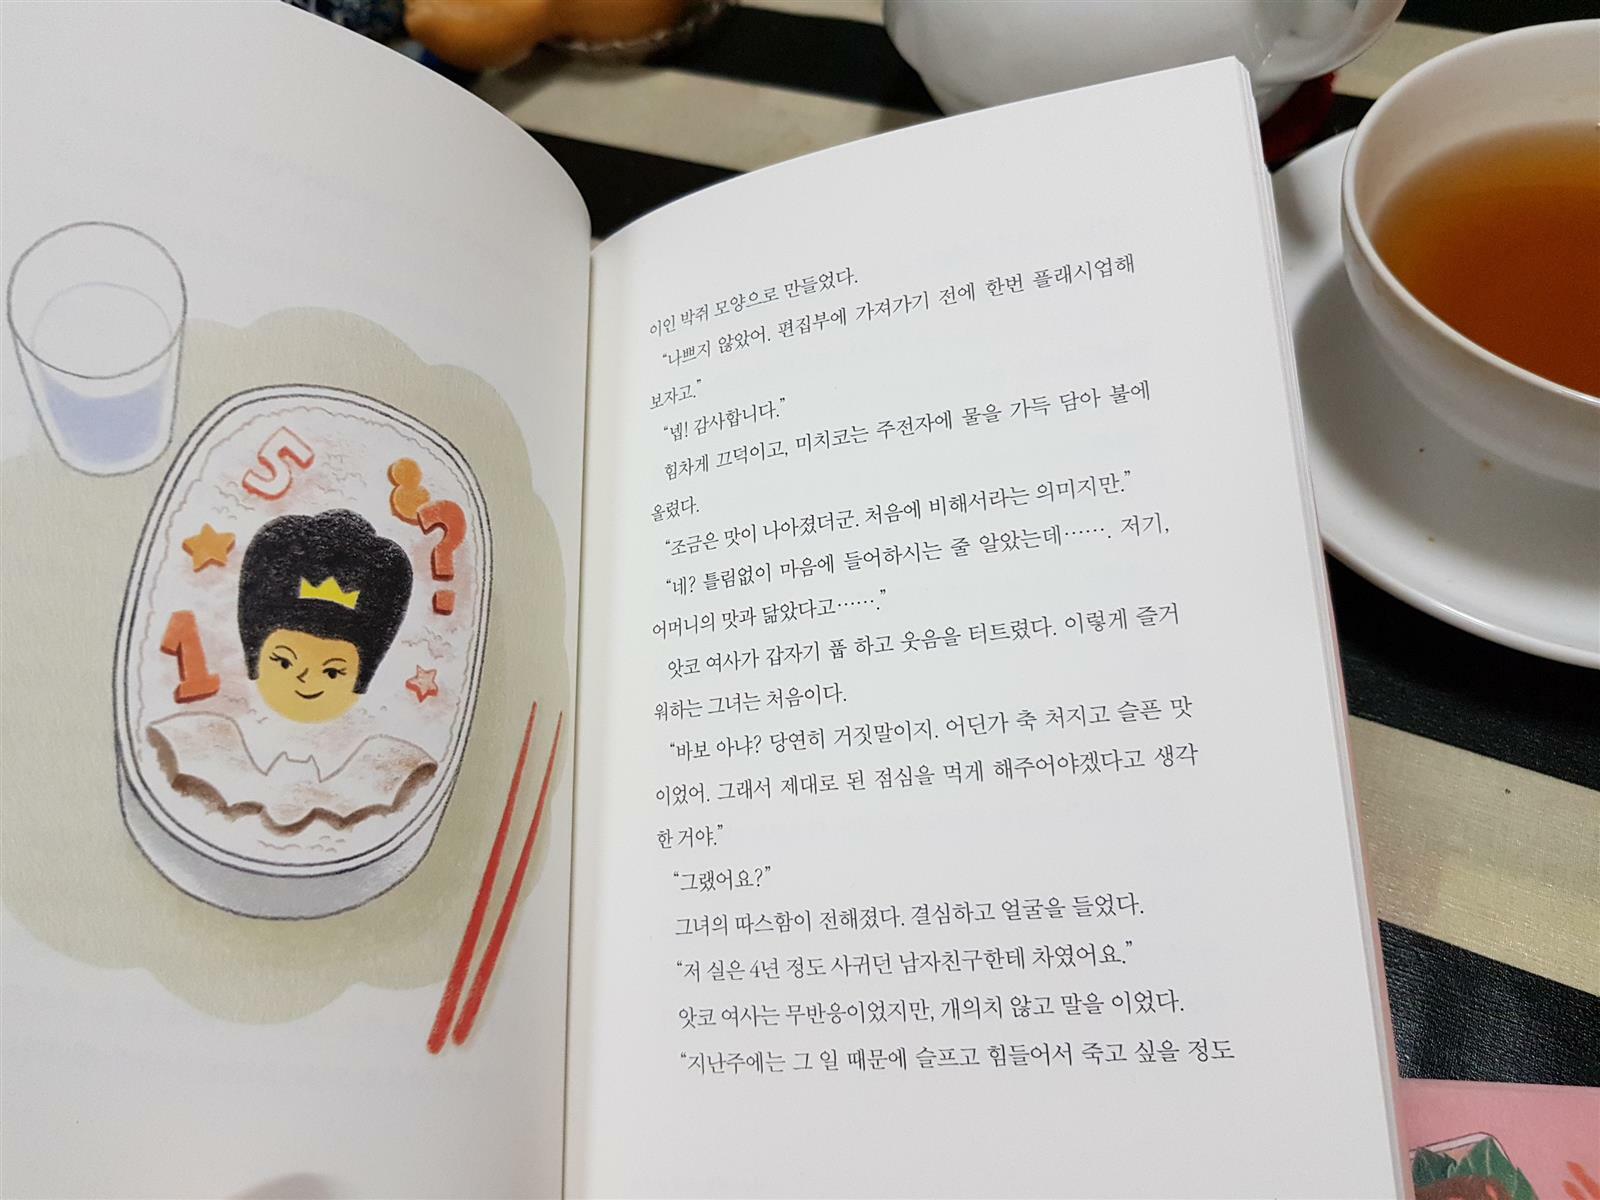 5
?
1
이인 박쥐 모양으로 만들었다.
“나쁘지 않았어. 편집부에 가져가기 전에 한번 플래시업해
보자고.”
“넵! 감사합니다.”
힘차게 끄덕이고, 미치코는 주전자에 물을 가득 담아 불에
올렸다.
“조금은 맛이 나아졌더군. 처음에 비해서라는 의미지만.”
“네? 틀림없이 마음에 들어하시는 줄 알았는데……. 저기,
어머니의 맛과 닮았다고…….”
앗코 여사가 갑자기 풉 하고 웃음을 터트렸다. 이렇게 즐거
워하는 그녀는 처음이다.
“바보 아냐? 당연히 거짓말이지. 어딘가 축 처지고 슬픈 맛
이었어. 그래서 제대로 된 점심을 먹게 해주어야겠다고 생각
한 거야.”
“그랬어요?”
그녀의 따스함이 전해졌다. 결심하고 얼굴을 들었다.
“저 실은 4년 정도 사귀던 남자친구한테 차였어요.”
앗코 여사는 무반응이었지만, 개의치 않고 말을 이었다.
“지난주에는 그 일 때문에 슬프고 힘들어서 죽고 싶을 정도